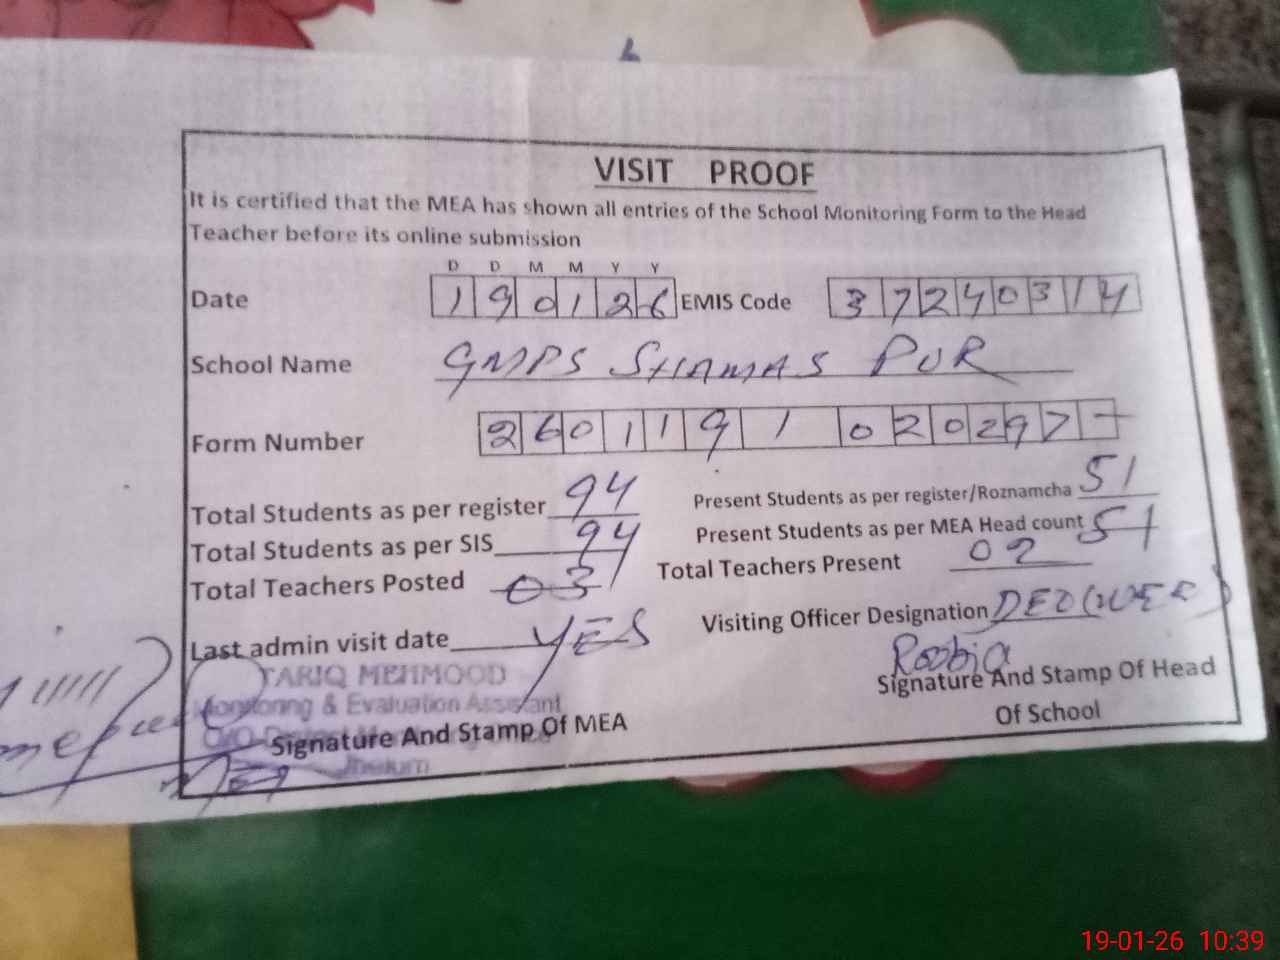 VISIT PROOF
It is certified that the MEA has shown all entries of the School Monitoring Form to the Head
Teacher before its online submission
D D M M Y Y
Date 190126 EMIS Code 37240314
School Name GMPS SHAMAS PUR
Form Number 2601191020297-
Total Students as per register 94 Present Students as per register/Roznamcha 51
Total Students as per SIS 94 Present Students as per MEA Head count 51
Total Teachers Posted 03 Total Teachers Present 02
Last admin visit date YES Visiting Officer Designation DEO(WEE)
TARIQ MEHMOOD
Monitoring & Evaluation Assistant
Roobia
Signature And Stamp Of MEA Signature And Stamp Of Head
Of School
Jhelum
19-01-26 10:39